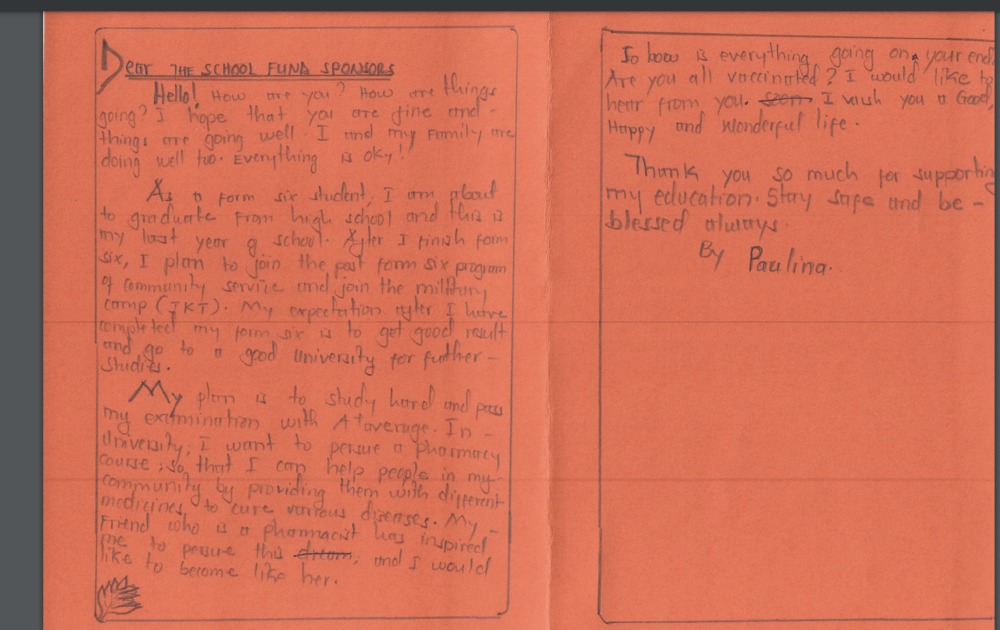 Dear THE SCHOOL FUND SPONSORS
Hello! How are you? How are things
going? I hope that you are fine and -
things are going well. I and my Family are
doing well too. Everything is oky!
As a form six student, I am about
to graduate from high school and this is
my last year of school. After I finish form
six, I plan to join the post form six program
of community service and join the millitary
camp (JKT). My expectation after I have
completed my form six is to get good result
and go to a good University for further -
studies.
My plan is to study hard and pass
my examination with A+ average. In -
University, I want to persue a pharmacy
course; so that I can help people in my
community by providing them with different
medicines, to cure various diseases. My -
Friend who is a pharmacist has inspired
me to persue this dream, and I would
like to become like her.
So how is everything going on your end.
Are you all vaccinated? I would like to
hear from you. soon I wish you a Good,
Happy and Wonderful life.
Thank you so much for supporting
my education. Stay safe and be -
blessed always.
By Paulina.